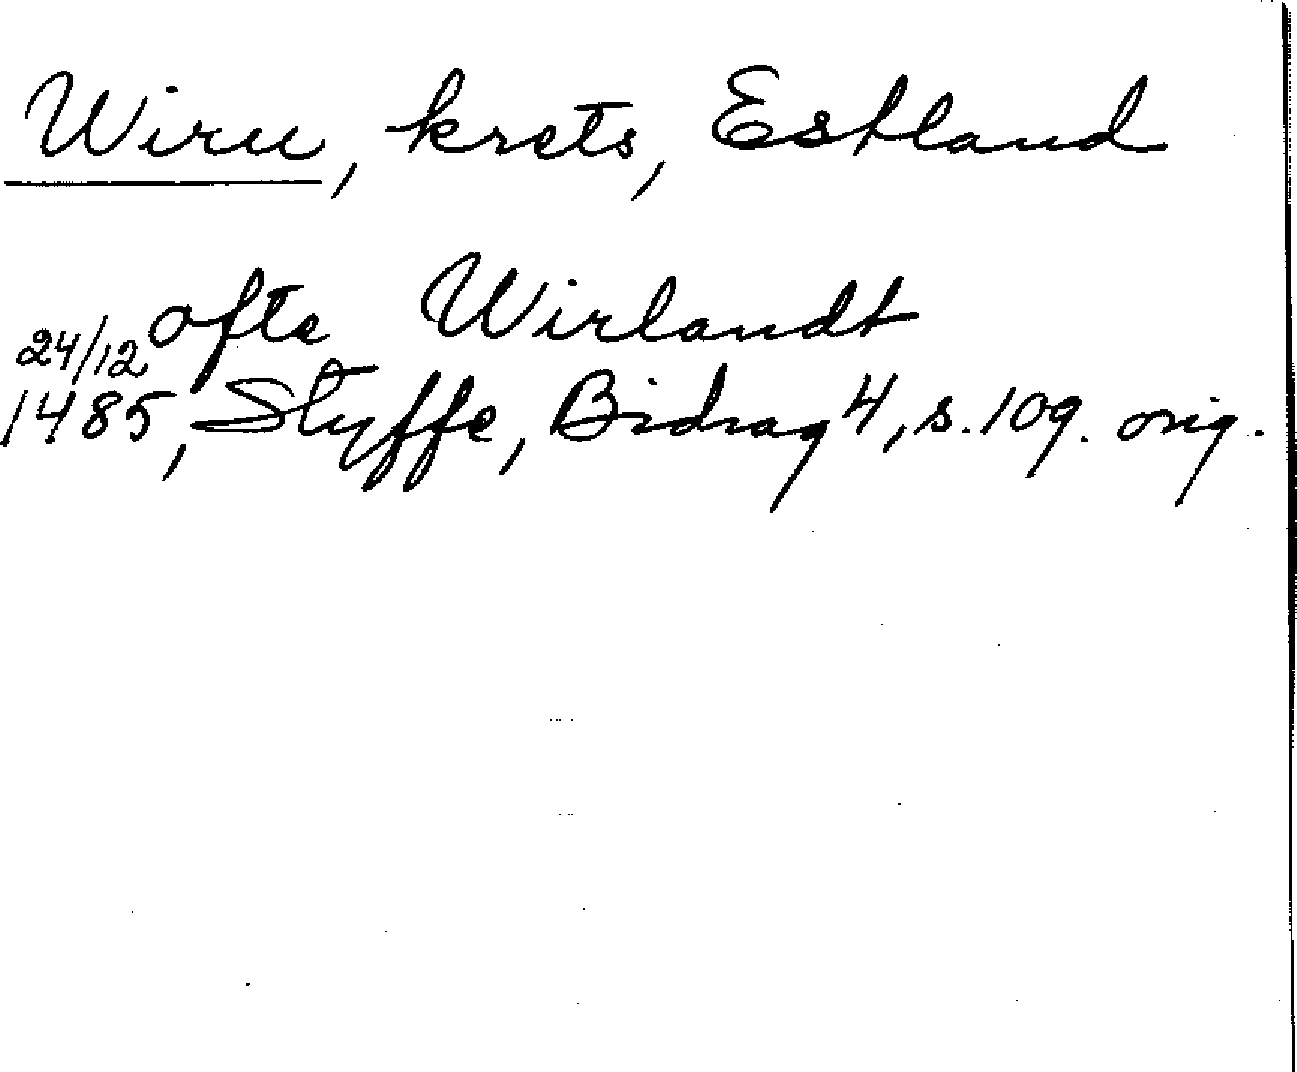 Wiru, krets, Estland
ofte Wirlandt
24/12 1485, Styffe, Bidrag 4, s. 109. orig.